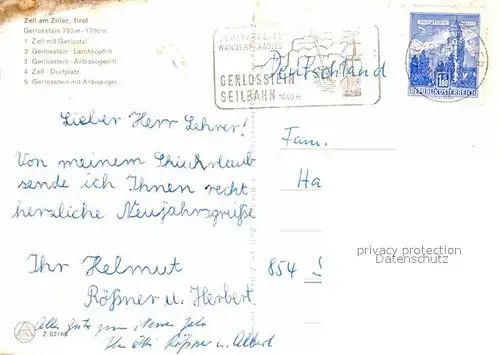 Zell am Ziller, Tirol
Gerlosstein 780 m - 1700 m
1 Zell mit Gerlostal
2 Gerlosstein - Larchkopflift
3 Gerlosstein - Arbiskogellift
4 Zell - Dorfplatz
5 Gerlosstein mit Arbiskogel
WANDERPARADIES
GERLOSSTEIN
SEILBAHN 1640 m
REPUBLIK ÖSTERREICH
Deutschland
Lieber Herr Lehrer!
Von meinem Skiurlaub
sende ich Ihnen recht
herzliche Neujahrsgrüße
Ihr Helmut
Rößner u. Herbert
Alles Gute zum Neuen Jahr
Rößner u. Albert
Fam.
Ha
854 S
privacy protection
Datenschutz
Z 02/68